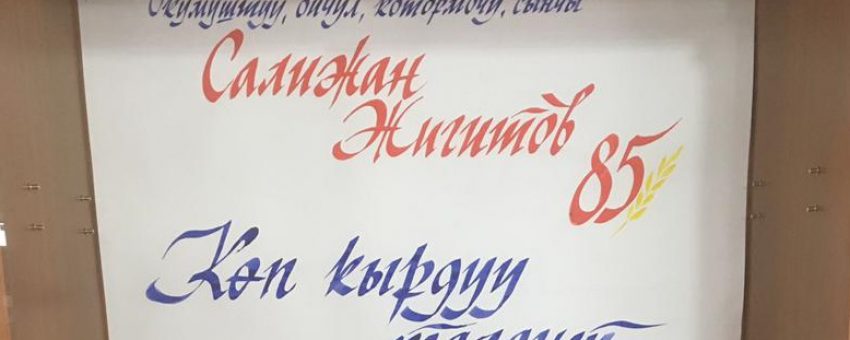 Окумуштуу, акын, котормочу, сынчы
Салижан
Жигитов
85
Көп кырдуу
талант